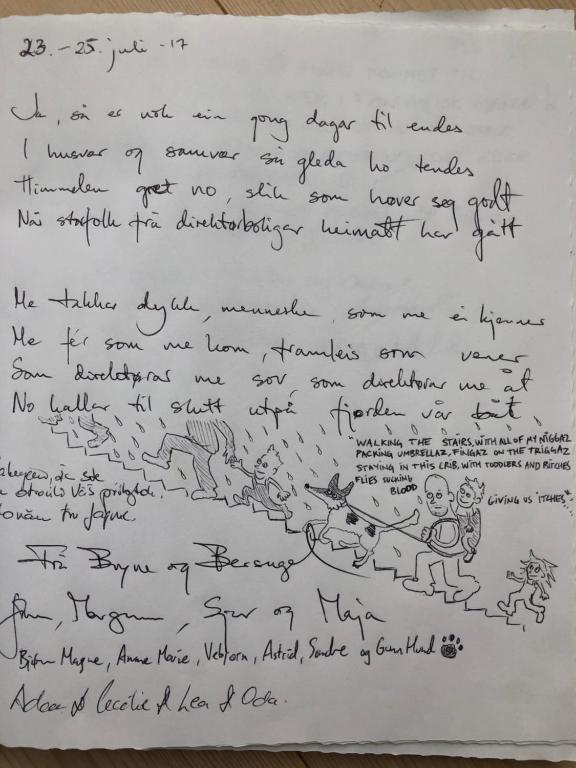 23. - 25. juli - 17
Ja, så er nok ein gong dagar til endes
I husvar og samvær så gleda ho tendes
Himmelen gret no, slik som høver seg godt
Når storfolk frå direktørboligar heimatt har gått
Me takkar dykk, menneske, som me ei kjenner
Me fér som me kom, framleis som vener
Som direktørar me sov, som direktørar me åt
No kallar til slutt utpå fjorden vår båt
"WALKING THE STAIRS, WITH ALL OF MY NIGGAZ
PACKING UMBRELLAZ, FINGAZ ON THE TRIGGAZ
STAYING IN THIS CRIB, WITH TODDLERS AND BITCHES
FLIES SUCKING
BLOOD
GIVING US ITCHES"
Frå Bryne og
, Margunn, og Maja
Bjørn Magne, Anne Marie, Vebjørn, Astrid, Sondre og Gunn Hund
& Cecilie & Lea & Oda.